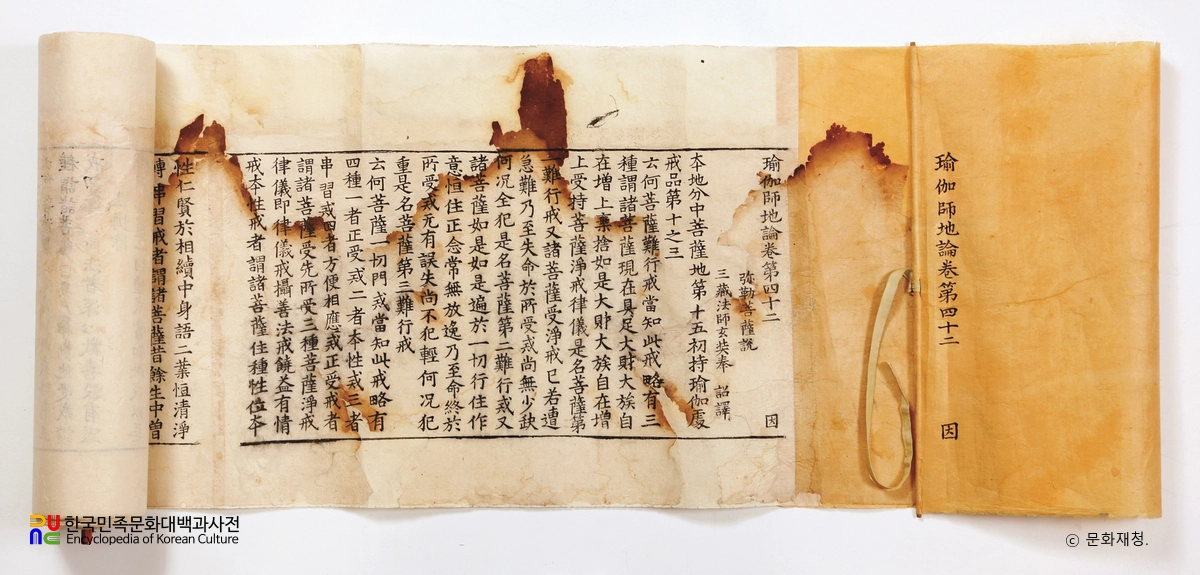 瑜伽師地論卷第四十二 因
瑜伽師地論卷第四十二 因
弥勒菩薩說
三藏法師玄奘奉 詔譯
本地分中菩薩地第十五初持瑜伽處
戒品第十之三
云何菩薩難行戒當知此戒略有三
種謂諸菩薩現在具足大財大族自
在增上棄捨如是大財大族自在增
上受持菩薩淨戒律儀是名菩薩第
一難行戒又諸菩薩受淨戒已若遭
急難乃至失命於所受戒尚無少缺
何況全犯是名菩薩第二難行戒又
諸菩薩如是如是遍於一切行住作
意恒住正念常無放逸乃至命終於
所受戒无有誤失尚不犯輕何況犯
重是名菩薩第三難行戒
云何菩薩一切門戒當知此戒略有
四種一者正受戒二者本性戒三者
串習戒四者方便相應戒正受戒者
謂諸菩薩受先所受三種菩薩淨戒
律儀即律儀戒攝善法戒饒益有情
戒本性戒者謂諸菩薩住種性位本
性仁賢於相續中身語二業恒清淨
轉串習戒者謂諸菩薩昔餘生中曾
한국민족문화대백과사전
Encyclopedia of Korean Culture
ⓒ 문화재청.